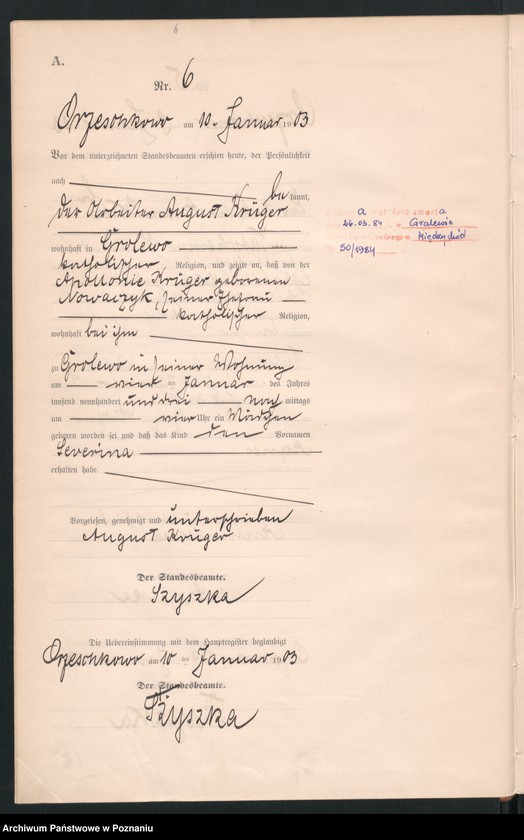 6
A.
Nr. 6
Orzeschkowo am 10. Januar 1903
Vor dem unterzeichneten Standesbeamten erschien heute, der Persönlichkeit
nach be kannt,
der Arbeiter August Krüger
wohnhaft in Grolewo
katholischer Religion, und zeigte an, daß von der
Apollonie Krüger geborenen
Nowaczyk, seiner Ehefrau
katholischer Religion,
wohnhaft bei ihm
zu Grolewo in seiner Wohnung
am vier ten Januar des Jahres
tausend neunhundert und drei nach mittags
um vier Uhr ein Mädchen
geboren worden sei und daß das Kind den Vornamen
Severina
erhalten habe.
Vorgelesen, genehmigt und unterschrieben
August Krüger
Der Standesbeamte.
Szyszka
Die Uebereinstimmung mit dem Hauptregister beglaubigt
Orzeschkowo am 10 ten Januar 1903
Der Standesbeamte.
Szyszka
a zmarła
26.03.84 w Gralewie
Międzychód
50/1984
Archiwum Państwowe w Poznaniu